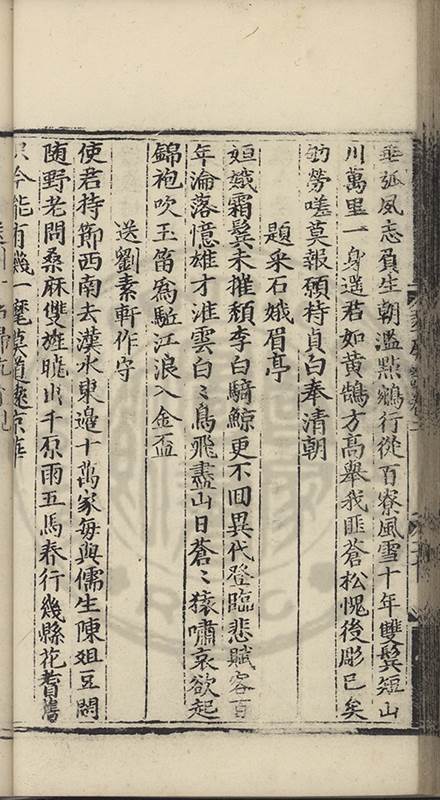 垂弧夙志負生朝濫點鵷行從百寮風雪十年雙鬂短山
川萬里一身遥君如黄鵠方高舉我匪蒼松愧後彫已矣
劬勞嗟莫報願持貞白奉清朝
題采石娥眉亭
姮娥霜鬂未摧頹李白騎鯨更不回異代登臨悲賦客百
年淪落憶雄才淮雲白〻鳥飛盡山日蒼〻猿嘯哀欲起
錦袍吹玉笛爲駈江浪入金盃
送劉素軒作守
使君持節西南去漢水東邉十萬家每與儒生陳俎豆閒
随野老問桑麻雙旌曉出千原雨五馬春行幾縣花耆舊
只今能有幾一麾莫道遠京華